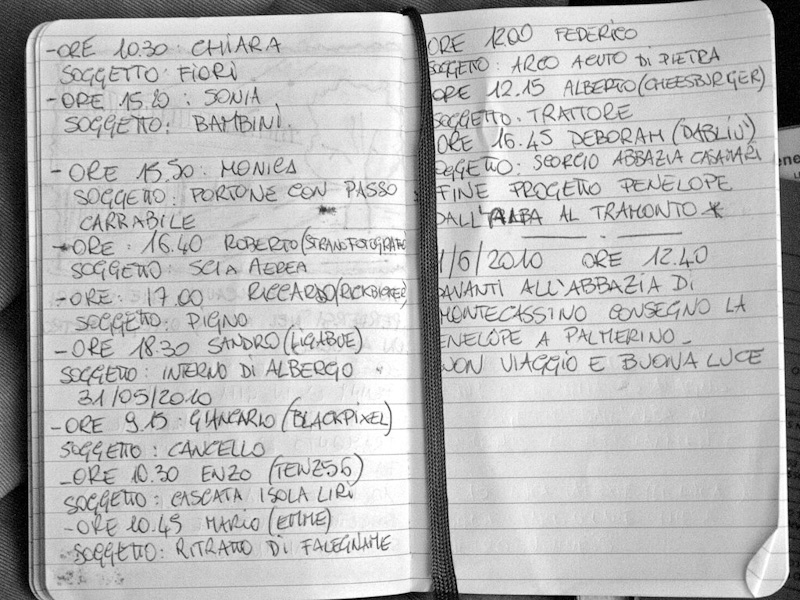 -ORE 10.30: CHIARA
SOGGETTO: FIORI
-ORE 15.20: SONIA
SOGGETTO: BAMBINI.
-ORE 15.50: MONICA
SOGGETTO: PORTONE CON PASSO
CARRABILE
-ORE: 16.40 ROBERTO (STRANOFOTOGRAFO
SOGGETTO: SCIA AEREA
-ORE: 17.00 RICCARDO (RICKBICKER)
SOGGETTO: PIGNO
-ORE 18.30 SANDRO (LIGABUE)
SOGGETTO: INTERNO DI ALBERGO
31/05/2010
-ORE 9.15: GIANCARLO (BLACKPIXEL)
SOGGETTO: CANCELLO
-ORE 10.30 ENZO (TENZ56)
SOGGETTO: CASCATA ISOLA LIRI
-ORE 10.45 MARIO (EMME)
SOGGETTO: RITRATTO DI FALEGNAME
ORE 1200 FEDERICO
SOGGETTO: ARCO ACUTO DI PIETRA
ORE 12.15 ALBERTO (CHEESBURGER)
SOGGETTO: TRATTORE
ORE 16.45 DEBORAH (DABLIÙ)
OGGETTO: SCORCIO ABBAZIA CASAMARI
FINE PROGETTO PENELOPE
DALL'ALBA AL TRAMONTO *
1/6/2010 ORE 12.40
DAVANTI ALL'ABBAZIA DI
MONTECASSINO CONSEGNO LA
ENELOPE A PALMERINO_
UON VIAGGIO E BUONA LUCE